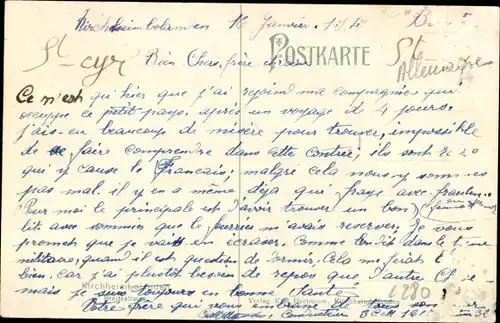 Kirchheimbolanden 16 Janvier
St-cyr Bien Cher frère et
POSTKARTE
Allemagne
Ce n'est qu'hier que j'ai rejoint ma compagnie qui
occupe ce petit pays. après un voyage de 4 jours.
j'ais eu beaucoup de misère pour trouver, impossible
de se faire comprendre dans cette contrée, ils sont
qui y cause le Français; malgré cela nous y sommes
pas mal. il y en a même déjà qui fraye avec
Pour moi le principale est d'avoir trouver un bon
lit avec sommier que le fourrier m'avais reserver. Je vous
promet que je vait en écraser. Comme on dit dans le
militaire, quand il est question de dormir. Cela me ferat
bien. Car j'ai plutôt besoin de repos que d'autre
mais je suis toujours en bonne Santé
Kirchheimbolanden
Breitestrasse
Verlag
4280
Votre frère qui vous embrasse de tous son